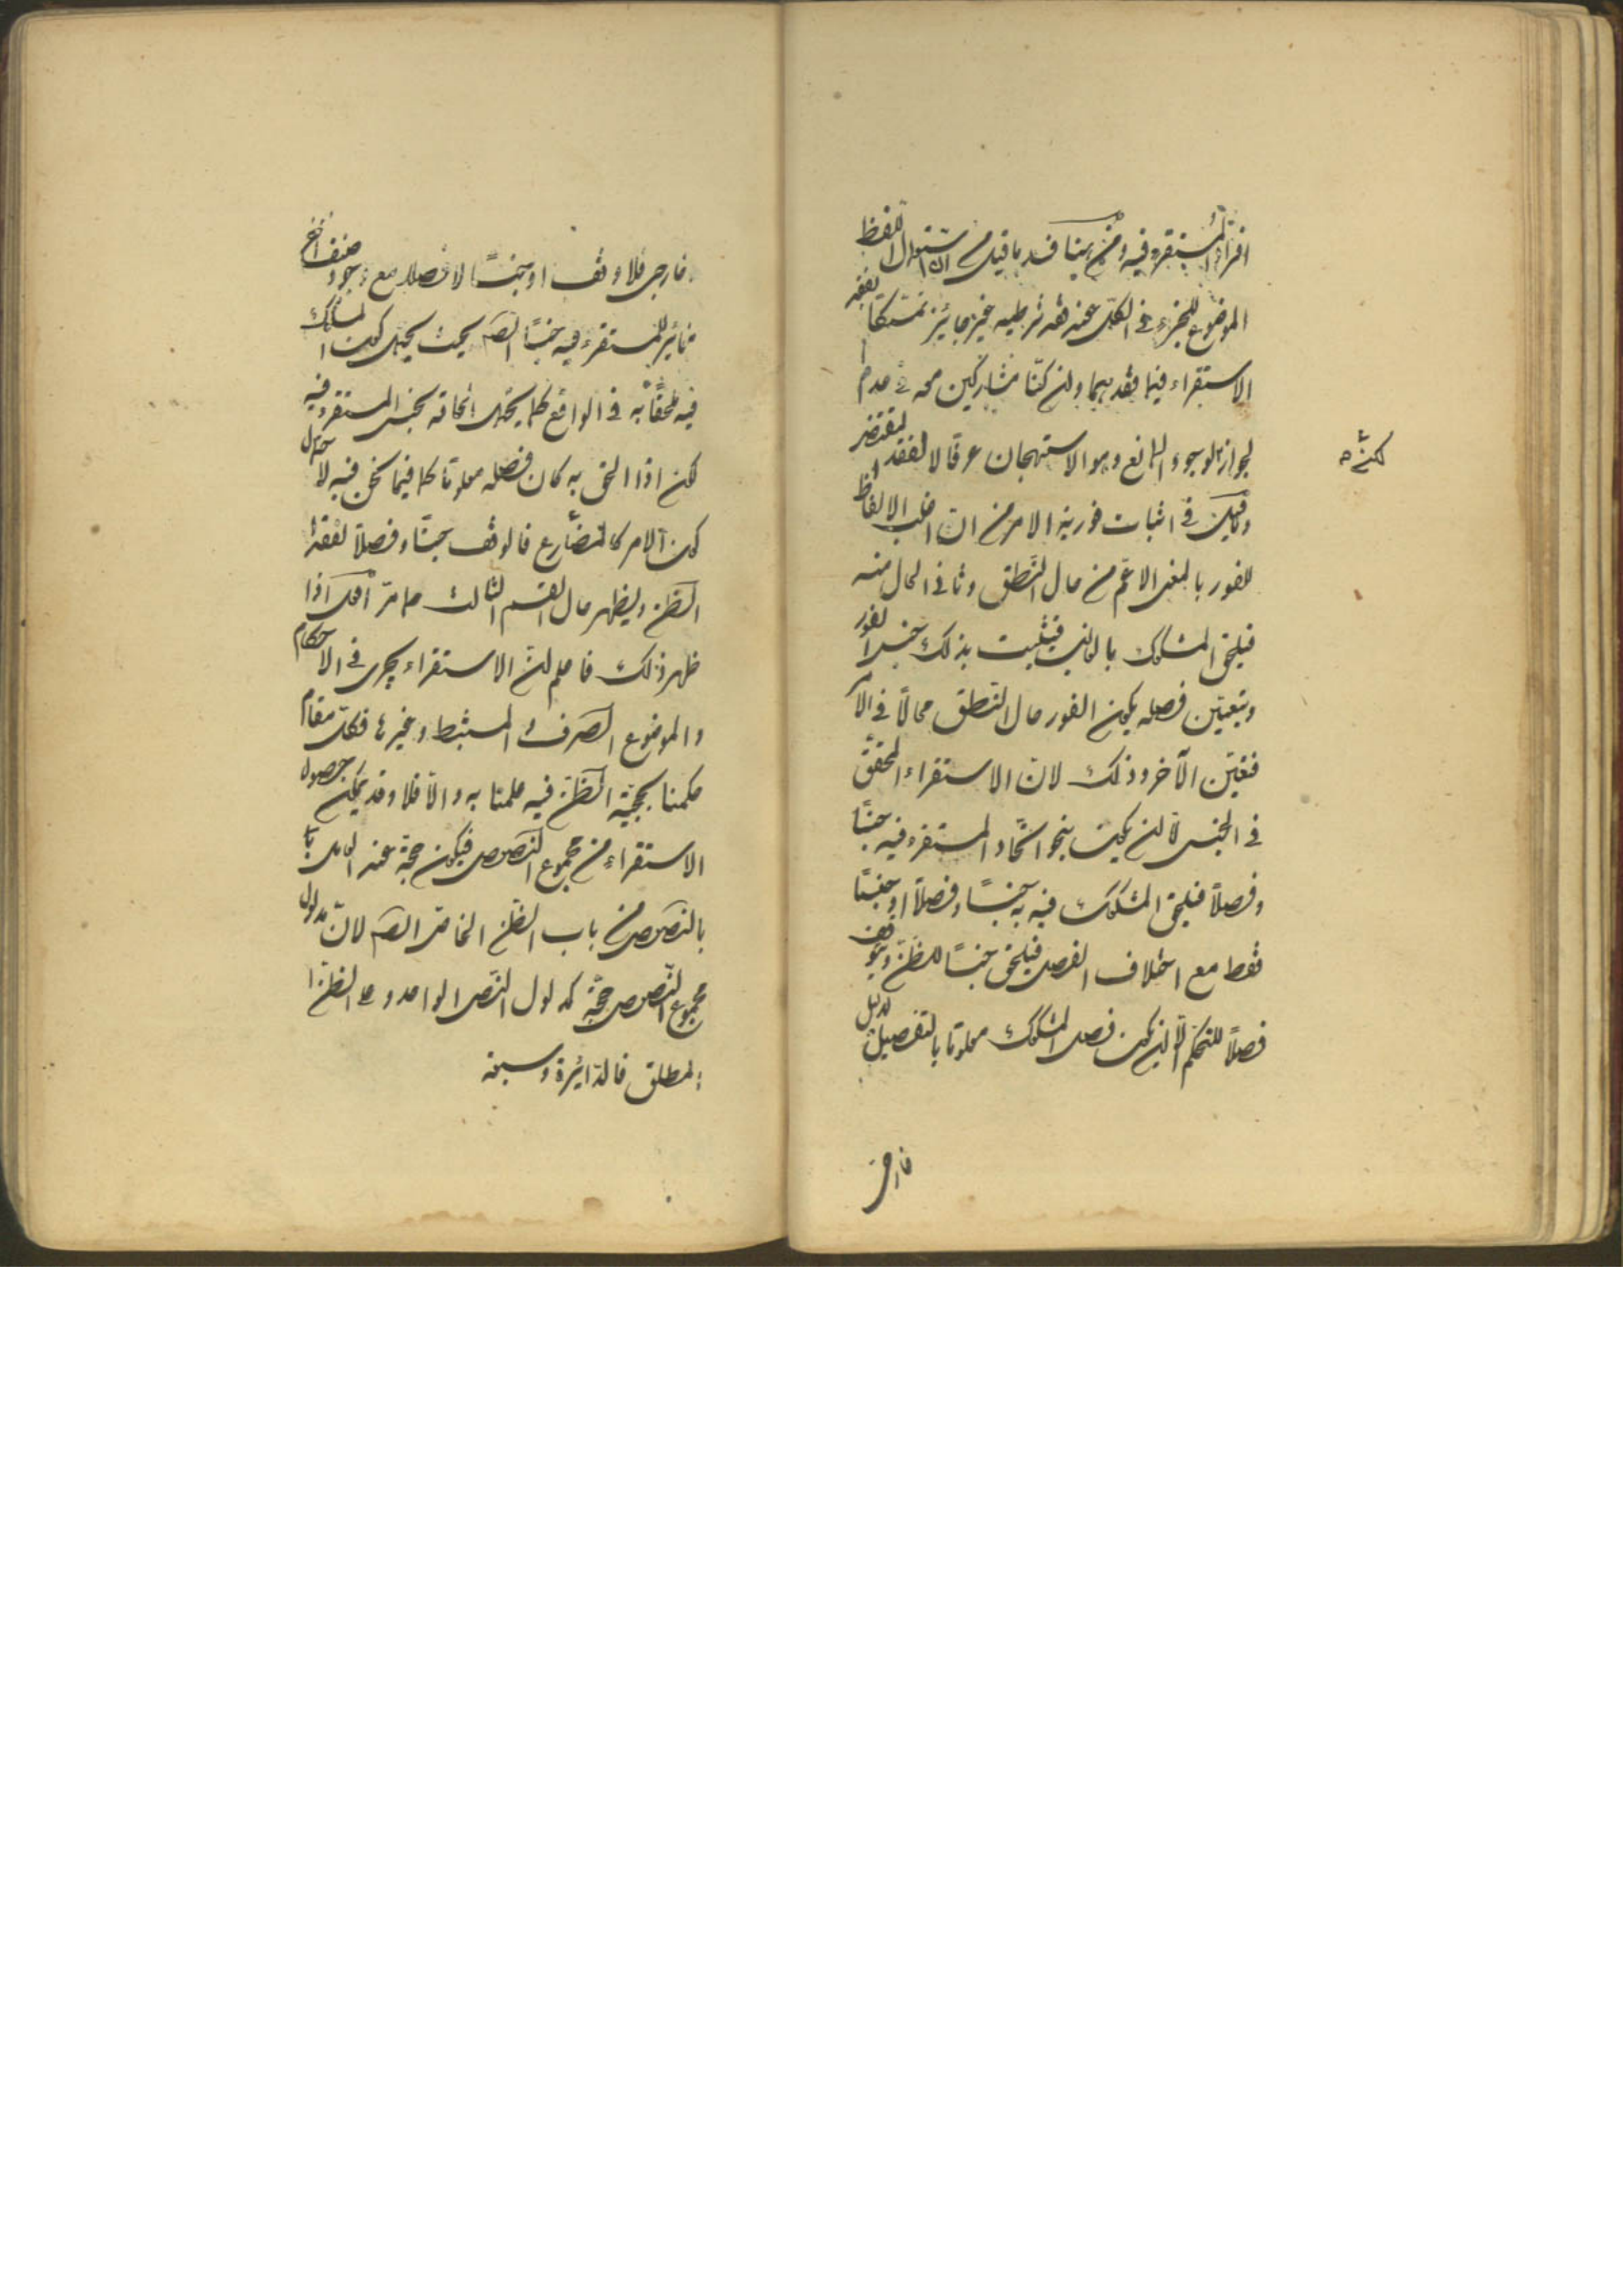 افراد المستقرء فيه ومن هنا فسد ما قيل من ان استعمال اللفظ
الموضوع للجزء في الكل عند فقد شرطيه غير جايز تمسكا بعقد
الاستقراء فيما فقد بهما ولن كنا مشاركين معه في عدم
لجوازه لوجود المانع وهو الاستهجان عرفا لا لفقد المقتضي
كثرة
وكما قيل في اثبات فورية الامر من ان اغلب الالفاظ
للفور بالمعنى الاعم من حال النطق وثاني الحال منه
فيلحق المشكوك بالغالب فيثبت بذلك جنس الفور
وبتعيين فصله بكون الفور حال النطق محالا في الامر
فتعين الآخر وذلك لان الاستقراء المحقق
في الجنس لا لن يكون بنحو اتحاد المستقرء فيه جنسا
وفصلا فيلحق المشكوك فيه به جنسا وفصلا او جنسا
فقط مع اختلاف الفصل فيلحق جنسا للظن ويتوقف
فصلا للتحكم الا لن يكون فصل المشكوك معلوما بالتفصيل لدليل
خارجي
خارجي فلا وقف او جنسا لا فصلا مع وجود صنف آخر
مغاير للمستقرء فيه جنسا ايضا بحيث يحتمل كون المشكوك
فيه ملحقا به في الواقع كما يحتمل الحاقه بجنس المستقرء فيه
لكن اذا الحق به كان فصله معلوما كما فيما نحن فيه لاحتمال
كون الامر كالمضارع فالوقف جنسا وفصلا لفقد
الظن ويظهر حال القسم الثالث مما مر آنفا اذا
ظهر ذلك فاعلم لن الاستقراء يجري في الاحكام
والموضوع الصرف والمستنبط وغيرها فكل مقام
حكمنا بحجية الظن فيه علمنا به والا فلا وقد يمكن حصول
الاستقراء من مجموع النصوص فيكون حجة عند العامل
بالنصوص من باب الظن الخاص ايضا لان مدلول
مجموع النصوص حجة كمدلول النص الواحد وعلى الظن
المطلق فالدائرة وسيعة